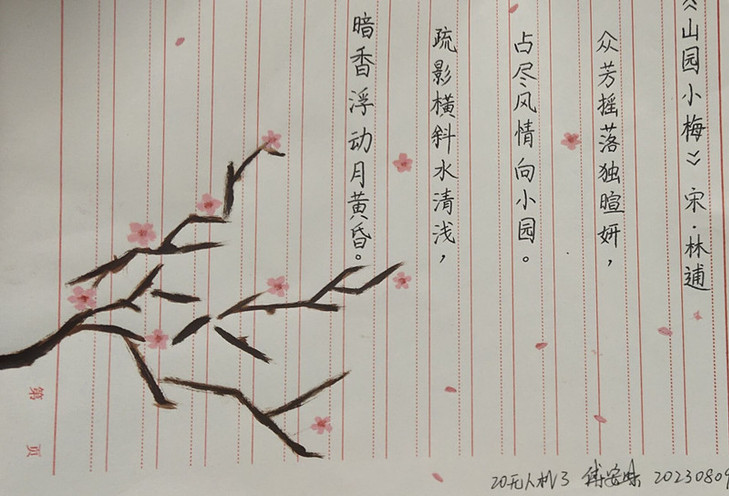 《山园小梅》宋·林逋
众芳摇落独暄妍，
占尽风情向小园。
疏影横斜水清浅，
暗香浮动月黄昏。
第 页
20无人机3 20230809